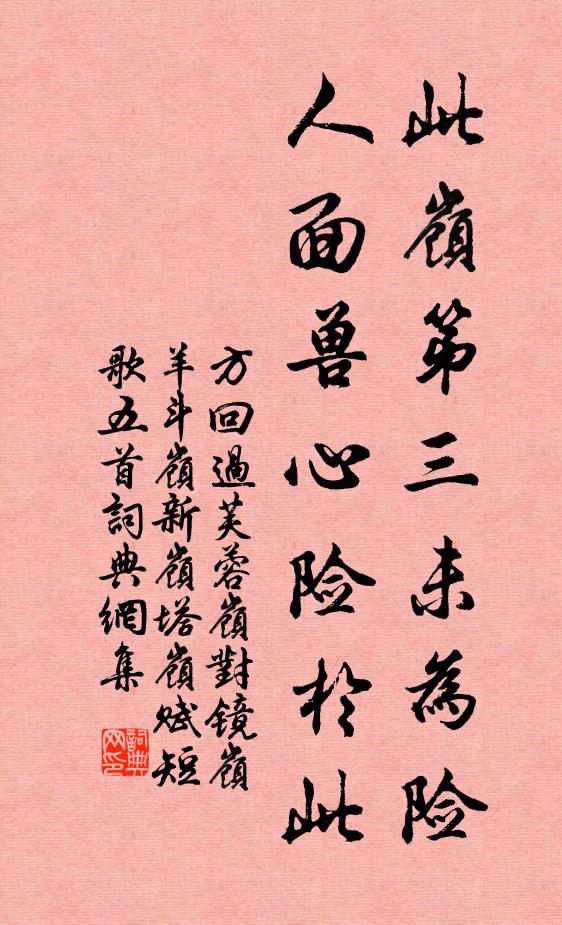 此嶺第三未為险
人面兽心险於此
方回過芙蓉嶺對镜嶺
羊斗嶺新嶺塔嶺赋短
歌五首詞典網集
詞典网印